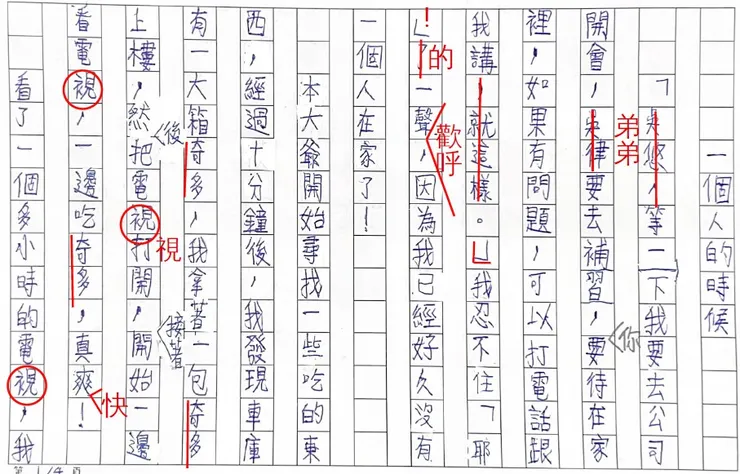 一個人的時候
「吳您，等一下我要去公司
開會，吳律要去補習，你要待在家
弟弟
裡，如果有問題，可以打電話跟
我講，就這樣。」我忍不住「耶
！」了一聲，因為我已經好久沒有
的
歡呼
一個人在家了！
本大爺開始尋找一些吃的東
西，經過十分鐘後，我發現車庫
有一大箱奇多，我拿著一包奇多
上樓，然後把電視打開，接著開始一邊
視
看電視，一邊吃奇多，真爽！
快
看了一個多小時的電視，我